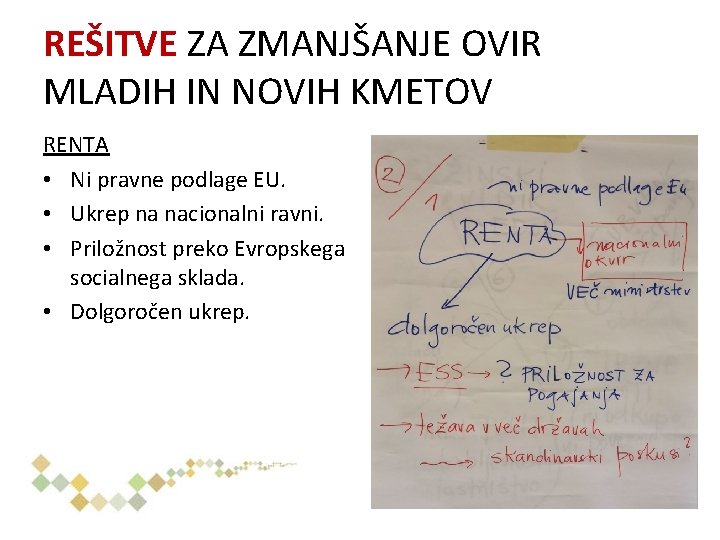 REŠITVE ZA ZMANJŠANJE OVIR
MLADIH IN NOVIH KMETOV
RENTA
• Ni pravne podlage EU.
• Ukrep na nacionalni ravni.
• Priložnost preko Evropskega
socialnega sklada.
• Dolgoročen ukrep.
2/1
ni pravne podlage EU
RENTA
nacionalni
okvir
VEČ ministrstev
dolgoročen ukrep
→ ESS → ? PRILOŽNOST ZA
POGAJANJA
→ težava v več državah
→ skandinavski poskus?